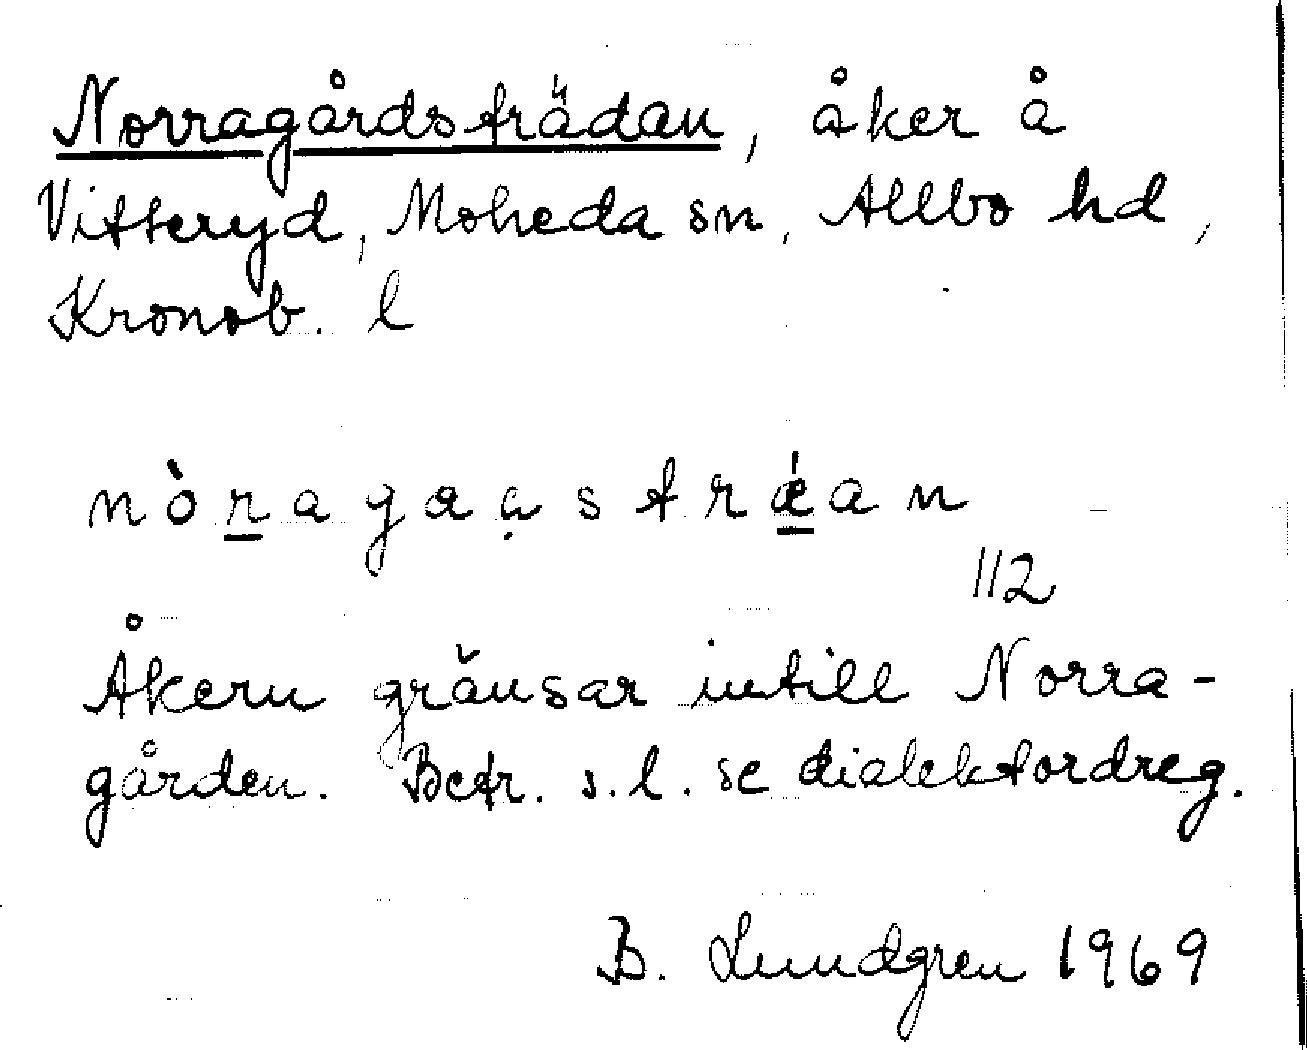 Norragårdsträdan, åker å
Vitteryd, Moheda sn, Allbo hd,
Kronob. l
nòr̲agaạstrǽ̲an
112
Åkern gränsar intill Norra-
gården. Betr. s.l. se dialektordreg.
B. Lundgren 1969